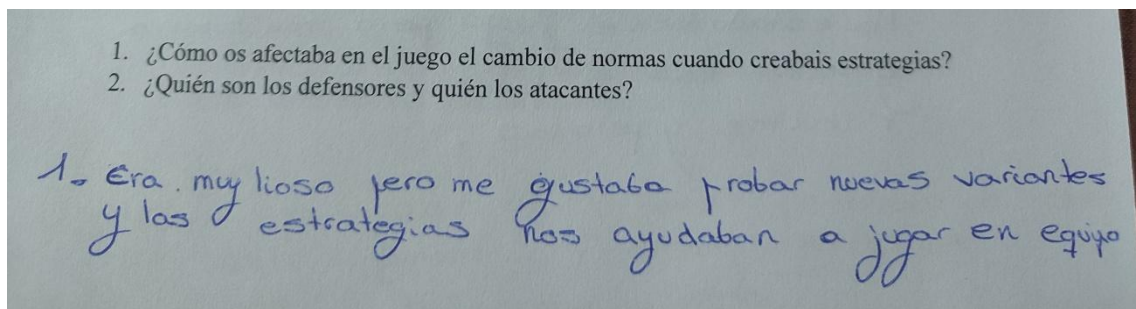 1. ¿Cómo os afectaba en el juego el cambio de normas cuando creabais estrategias?
2. ¿Quién son los defensores y quién los atacantes?
1. Era muy lioso pero me gustaba probar nuevas variantes
y las estrategias nos ayudaban a jugar en equipo